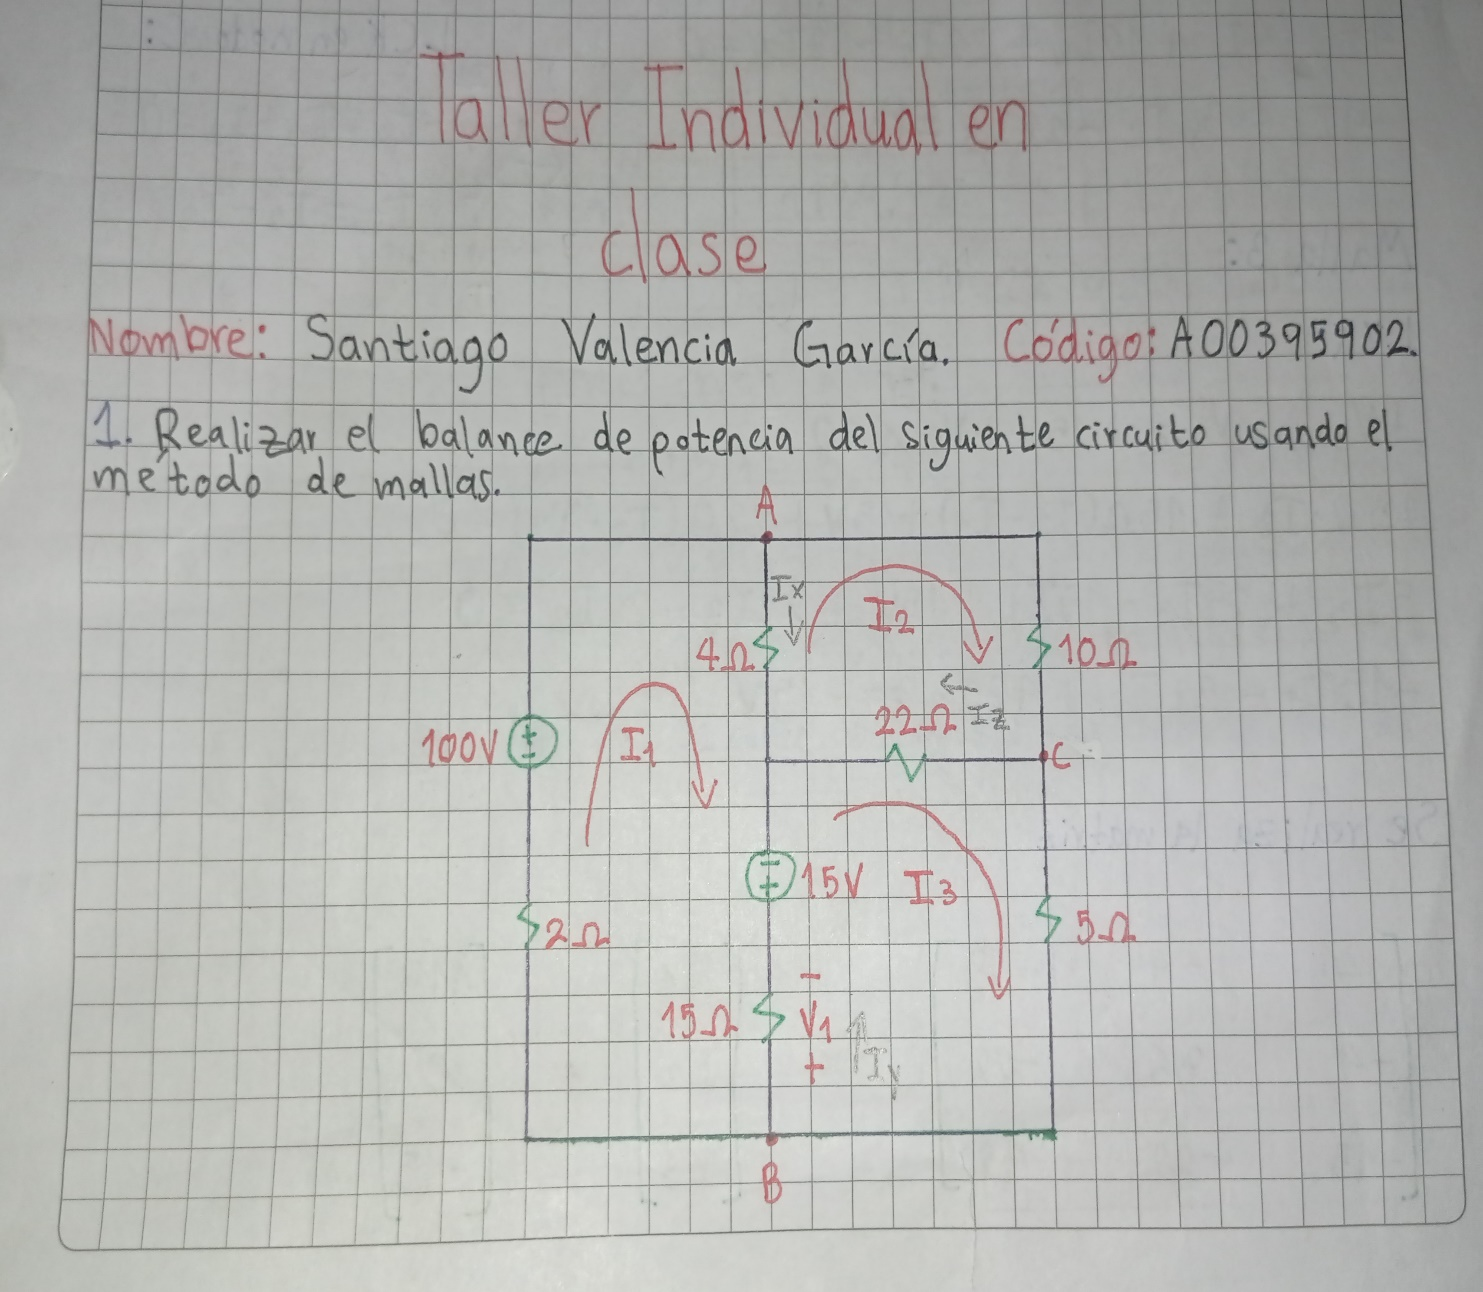 Taller Individual en
clase
Nombre: Santiago Valencia García. Código: A00395902.
1. Realizar el balance de potencia del siguiente circuito usando el
método de mallas.
A
Ix
I2
4Ω
10Ω
22Ω Iz
100V
I1
C
15V
I3
2Ω
5Ω
-
15Ω
V1
+
Iy
B